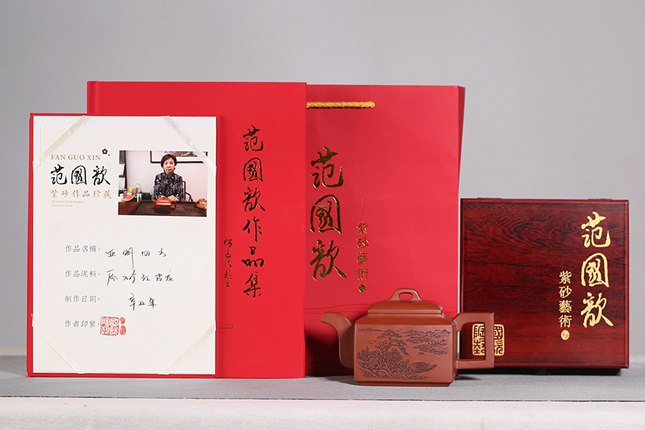 FAN GUO XIN
范國歆
紫砂作品珍藏
作品名稱：亚明四方
作品泥料：
制作日期：辛丑年
作者印鑒：
范國歆作品集
范國歆
紫砂藝術
范國歆
紫砂藝術